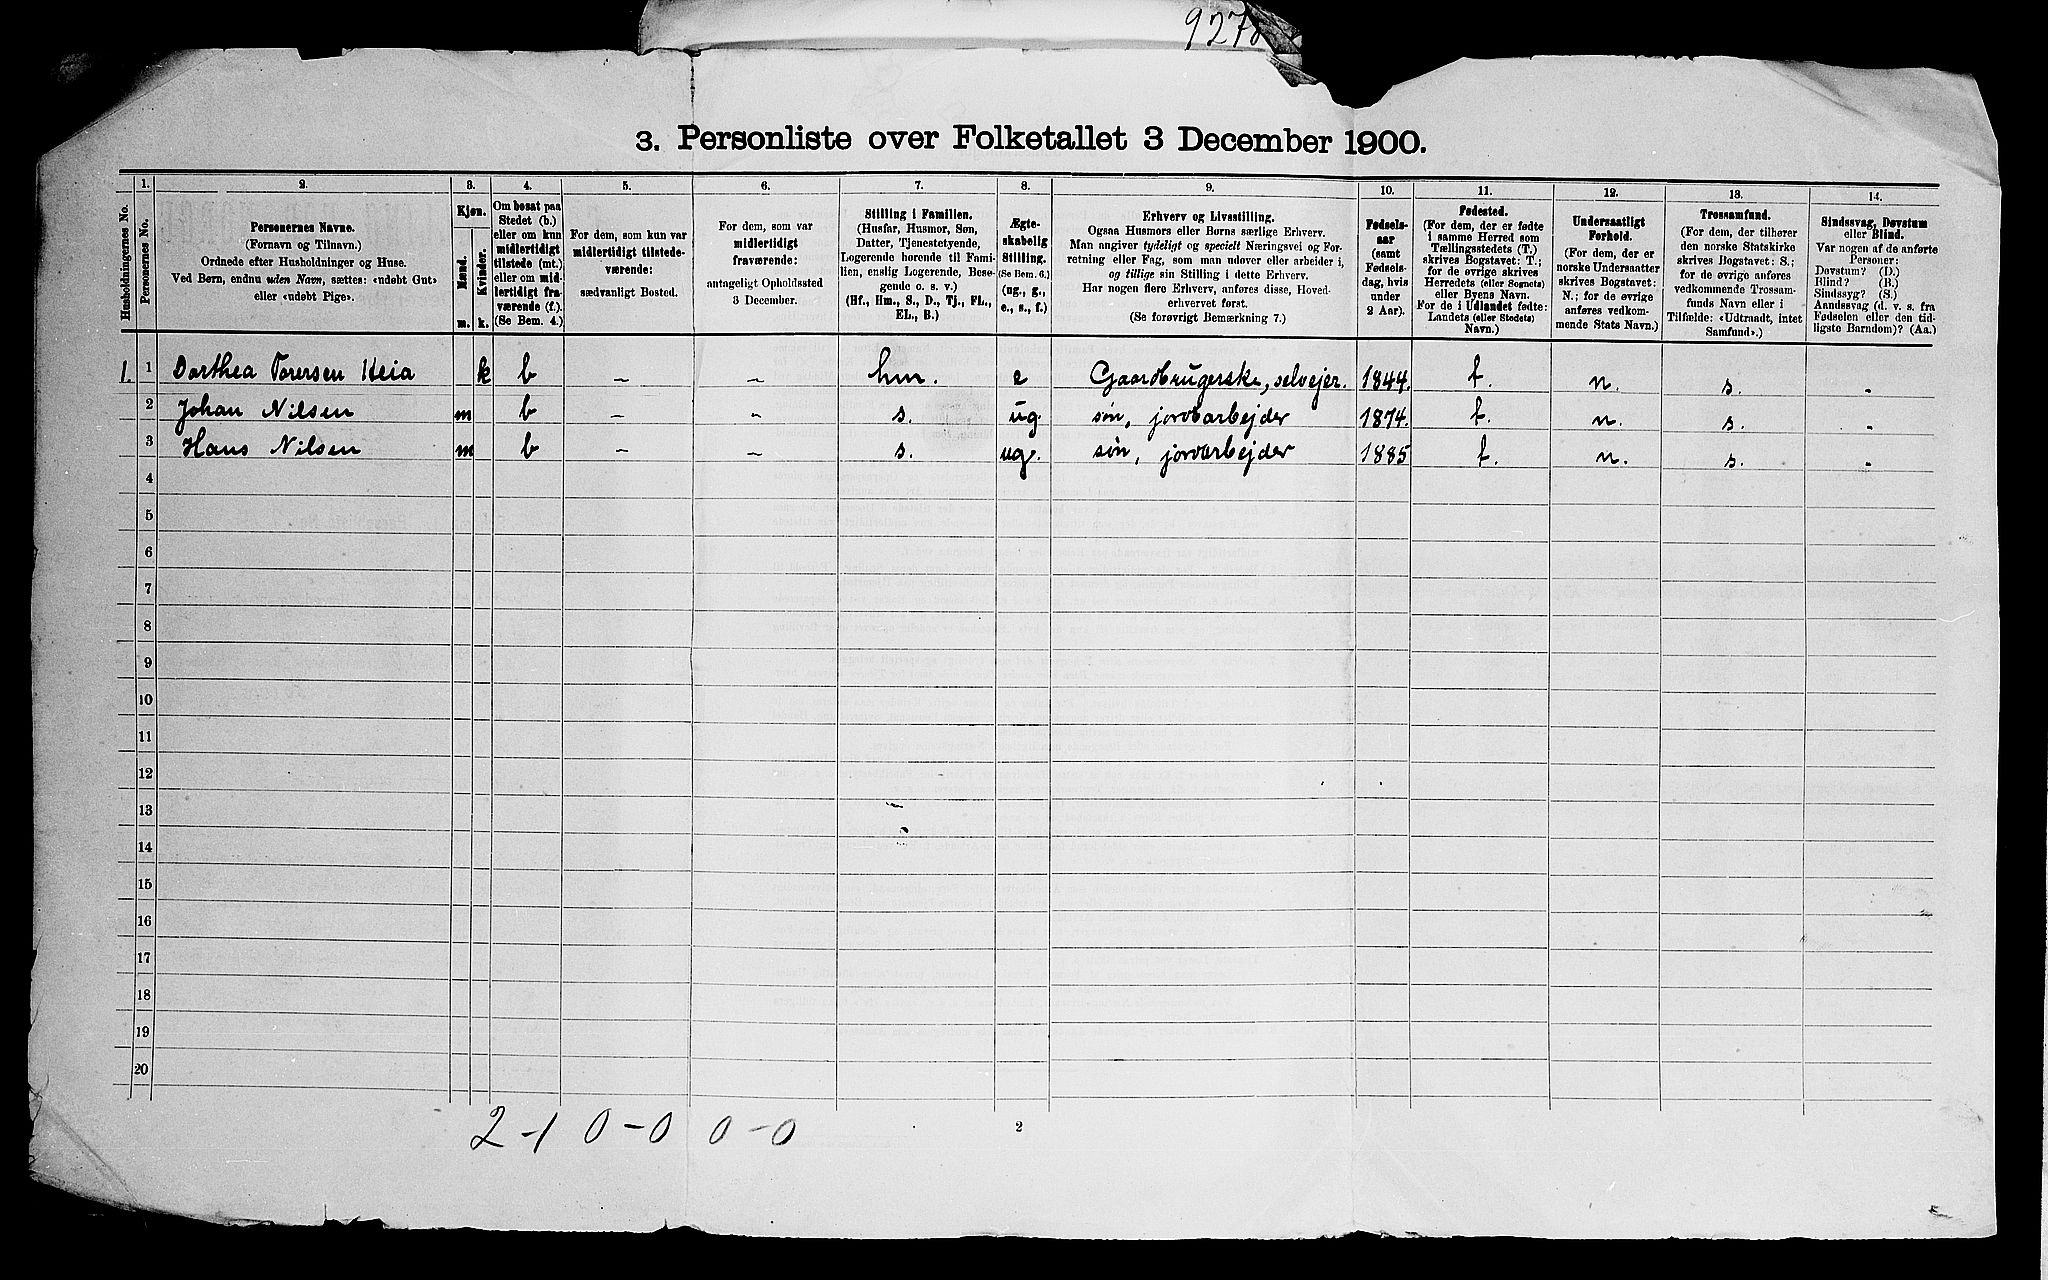 9278
3. Personliste over Folketallet 3 December 1900.
1. 2. 3. 4. 5. 6. 7. 8. 9. 10. 11. 12. 13. 14.
Husholdningernes No.
Personernes No.
Personernes Navne.
(Fornavn og Tilnavn.)
Ordnede efter Husholdninger og Huse.
Ved Børn, endnu uden Navn, sættes: «udøbt Gut»
eller «udøbt Pige».
Kjøn.
Mænd.
Kvinder.
m. k.
Om bosat paa
Stedet (b.)
eller om kun
midlertidigt
tilstede (mt.)
eller om mid-
lertidigt fra-
værende (f.)
(Se Bem. 4.)
For dem, som kun var
midlertidigt tilstede-
værende:
sædvanligt Bosted.
For dem, som var
midlertidigt
fraværende:
antageligt Opholdssted
3 December.
Stilling i Familien.
(Husfar, Husmor, Søn,
Datter, Tjenestetyende,
Logerende hørende til Fami-
lien, enslig Logerende, Besø-
gende o. s. v.)
(Hf., Hm., S., D., Tj., FL.,
EL., B.)
Ægte-
skabelig
Stilling.
(Se Bem. 6.)
(ug., g.,
e., s., f.)
Erhverv og Livsstilling.
Ogsaa Husmors eller Børns særlige Erhverv.
Man angiver tydeligt og specielt Næringsvei og For-
retning eller Fag, som man udøver eller arbeider i,
og tillige sin Stilling i dette Erhverv.
Har nogen flere Erhverv, anføres disse, Hoved-
erhvervet først.
(Se forøvrigt Bemærkning 7.)
Fødsels-
aar
(samt
Fødsels-
dag, hvis
under
2 Aar).
Fødested.
(For dem, der er fødte
i samme Herred som
Tællingsstedets (T.)
skrives Bogstavet: T.;
for de øvrige skrives
Herredets (eller Sognets)
eller Byens Navn.
For de i Udlandet fødte:
Landets (eller Stedets)
Navn.)
Undersaatligt
Forhold.
(For dem, der er
norske Undersaatter
skrives Bogstavet:
N.; for de øvrige
anføres vedkom-
mende Stats Navn.)
Trossamfund.
(For dem, der tilhører
den norske Statskirke
skrives Bogstavet: S.;
for de øvrige anføres
vedkommende Trossam-
funds Navn eller i
Tilfælde: «Udtraadt, intet
Samfund».)
Sindssvag, Døvstum
eller Blind.
Var nogen af de anførte
Personer:
Døvstum? (D.)
Blind? (B.)
Sindssyg? (S.)
Aandssvag (d. v. s. fra
Fødselen eller den tid-
ligste Barndom)? (Aa.)
1. 1 Dorthea Torersen Heia k b – – hm. e Gaardbrugerske, selvejer. 1844. t. n. s. -
2 Johan Nilsen m b – – s. ug. søn, jordarbejder 1874. t. n. s. -
3 Hans Nilsen m b – – s. ug. søn, jordarbejder 1885 t. n. s. -
4
5
6
7
8
9
10
11
12
13
14
15
16
17
18
19
20
2-1 0-0 0-0
2